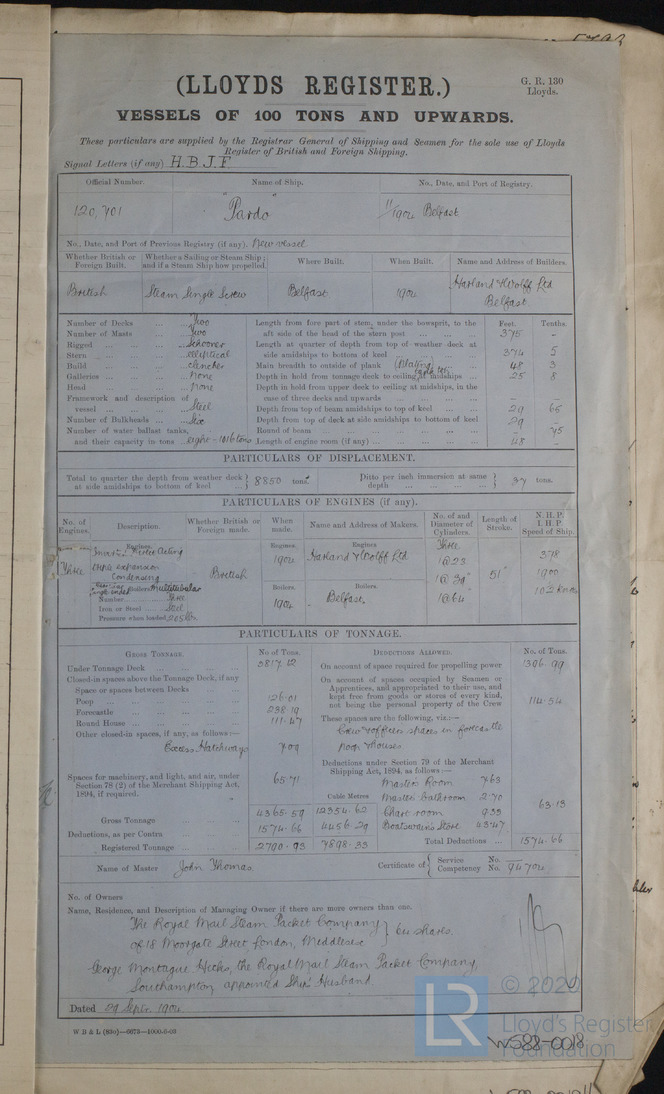 (LLOYDS REGISTER.)
G. R. 130
Lloyds.
VESSELS OF 100 TONS AND UPWARDS.
These particulars are supplied by the Registrar General of Shipping and Seamen for the sole use of Lloyds
Register of British and Foreign Shipping.
Signal Letters (if any) H.B.J.F
Official Number. Name of Ship. No., Date, and Port of Registry.
120,701 "Pardo" 11/1904 Belfast
No., Date, and Port of Previous Registry (if any). New vessel
Whether British or Foreign Built. Whether a Sailing or Steam Ship; and if a Steam Ship how propelled. Where Built. When Built. Name and Address of Builders.
British Steam Single Screw Belfast 1904 Harland & Wolff Ltd Belfast
Number of Decks ... Two
Number of Masts ... Two
Rigged ... Schooner
Stern ... elliptical
Build ... clencher
Galleries ... none
Head ... none
Framework and description of vessel ... Steel
Number of Bulkheads ... Six
Number of water ballast tanks, and their capacity in tons ... eight - 1016 tons
Feet. Tenths.
Length from fore part of stem, under the bowsprit, to the aft side of the head of the stern post ... 375 -
Length at quarter of depth from top of weather deck at side amidships to bottom of keel 374 5
Main breadth to outside of plank (Plating) 48 3
Depth in hold from tonnage deck to ceiling at midships ... 25 8
Depth in hold from upper deck to ceiling at midships, in the case of three decks and upwards ... - -
Depth from top of beam amidships to top of keel ... 29 65
Depth from top of deck at side amidships to bottom of keel 29 -
Round of beam ... - 95
Length of engine room (if any) ... 48 -
PARTICULARS OF DISPLACEMENT.
Total to quarter the depth from weather deck at side amidships to bottom of keel ... 8850 tons. Ditto per inch immersion at same depth ... 37 tons.
PARTICULARS OF ENGINES (if any).
No. of Engines. Description. Whether British or Foreign made. When made. Name and Address of Makers. No. of and Diameter of Cylinders. Length of Stroke. N.H.P. I.H.P. Speed of Ship.
Engines. Engines. Engines Three 378
Three Invert. Direct Acting triple expansion Condensing British 1904 Harland & Wolff Ltd 1@23 1@39" 1@64 51" 1900 10½ Knots
Boilers Multitubular Boilers. Boilers.
Number ... Three
Iron or Steel ... Steel 1904 Belfast
Pressure when loaded 205 lbs
PARTICULARS OF TONNAGE.
GROSS TONNAGE. No. of Tons. DEDUCTIONS ALLOWED. No. of Tons.
Under Tonnage Deck ... 3817.12
Closed-in spaces above the Tonnage Deck, if any
Space or spaces between Decks ...
Poop ... 126.01
Forecastle ... 238.19
Round House ... 111.47
Other closed-in spaces, if any, as follows:—
Excess Hatchways 7.09
Spaces for machinery, and light, and air, under Section 78 (2) of the Merchant Shipping Act, 1894, if required. 65.71
Cable Metres
Gross Tonnage ... 4365.59 12354.62
Deductions, as per Contra ... 1574.66 4456.29
Registered Tonnage ... 2790.93 7898.33
On account of space required for propelling power 1396.99
On account of spaces occupied by Seamen or Apprentices, and appropriated to their use, and kept free from goods or stores of every kind, not being the personal property of the Crew 114.54
These spaces are the following, viz.:—
Crew & officers spaces in forecastle poop & houses
Deductions under Section 79 of the Merchant Shipping Act, 1894, as follows:—
Master's Room 7.63
Master's bathroom 2.70
Chart room 9.33
Boatswain's Store 43.47
63.13
Total Deductions ... 1574.66
Name of Master John Thomas Certificate of { Service No. — Competency No. 94704
No. of Owners
Name, Residence, and Description of Managing Owner if there are more owners than one.
The Royal Mail Steam Packet Company
of 18 Moorgate Street, London, Middlesex } 64 shares.
George Montague Hicks, the Royal Mail Steam Packet Company,
Southampton, appointed Ship's Husband.
Dated 29 Septr. 1904
W B & L (83o)—6673—1000-6-03
LR
© 2020
Lloyd's Register
Foundation
W588-0018